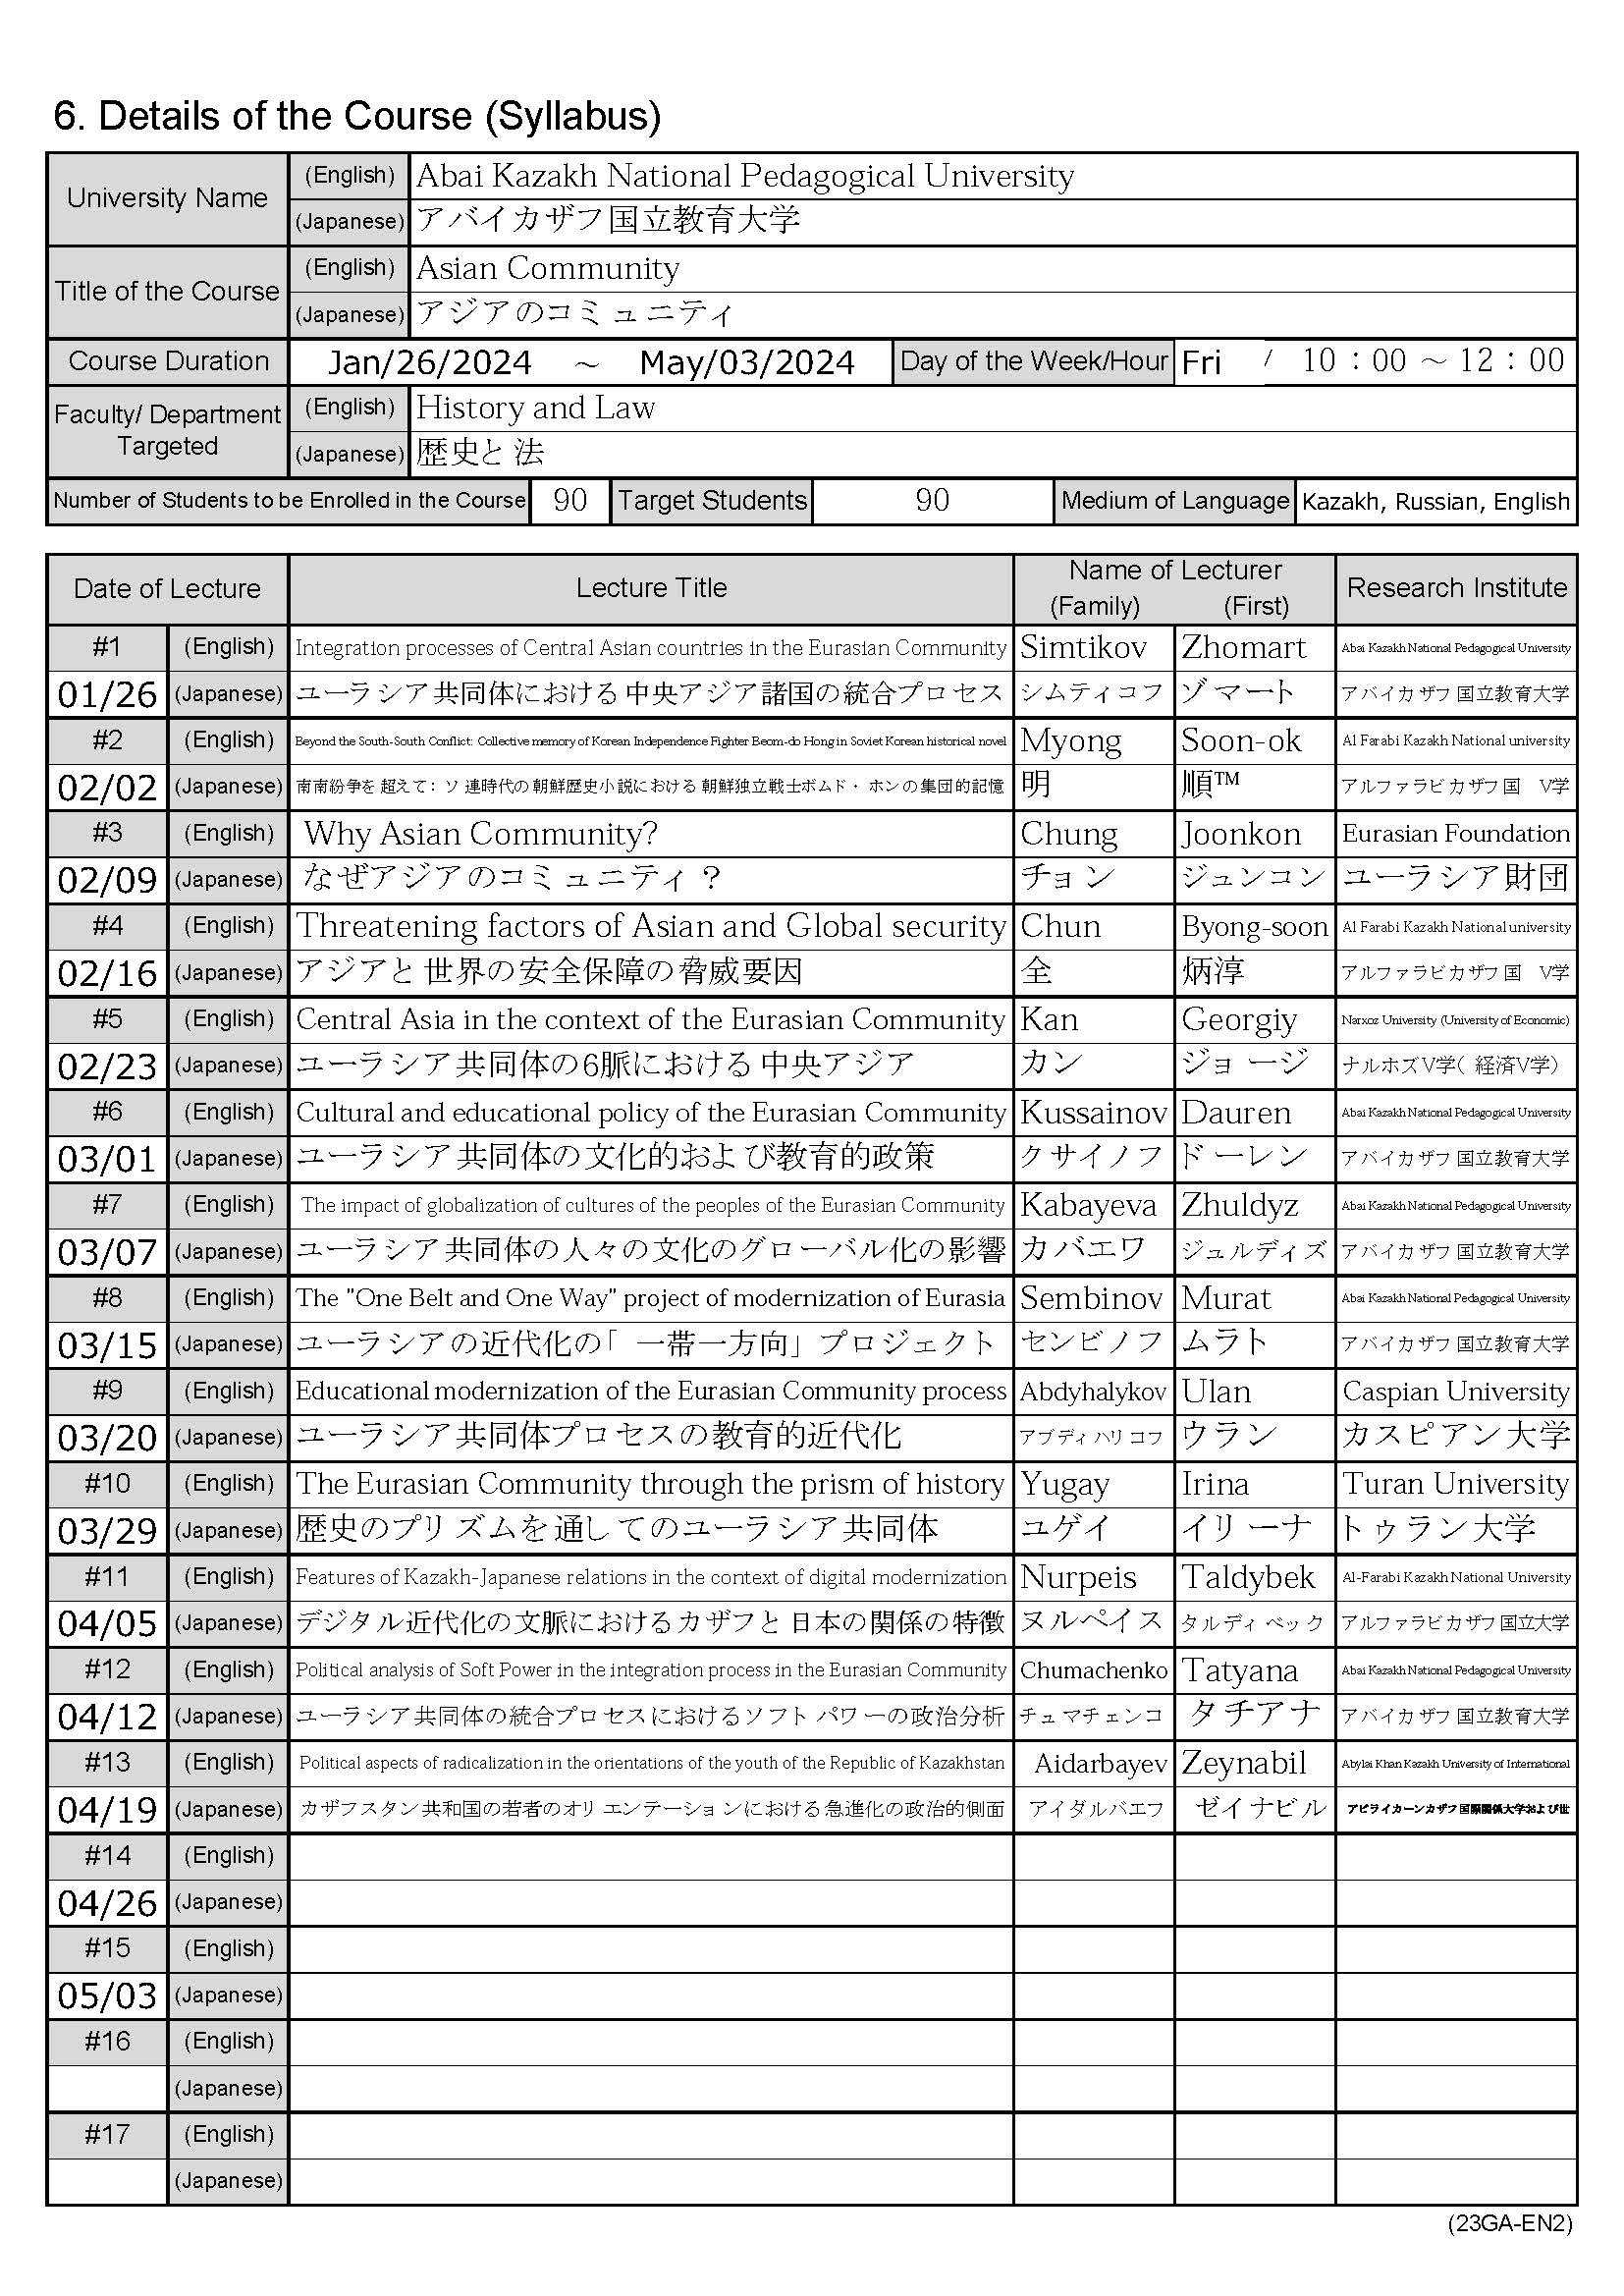 6. Details of the Course (Syllabus)
University Name (English) Abai Kazakh National Pedagogical University
(Japanese) アバイカザフ国立教育大学
Title of the Course (English) Asian Community
(Japanese) アジアのコミュニティ
Course Duration Jan/26/2024 ～ May/03/2024 Day of the Week/Hour Fri / 10：00 ～ 12：00
Faculty/ Department Targeted (English) History and Law
(Japanese) 歴史と法
Number of Students to be Enrolled in the Course 90 Target Students 90 Medium of Language Kazakh, Russian, English
Date of Lecture Lecture Title Name of Lecturer (Family) (First) Research Institute
#1 (English) Integration processes of Central Asian countries in the Eurasian Community Simtikov Zhomart Abai Kazakh National Pedagogical University
01/26 (Japanese) ユーラシア共同体における中央アジア諸国の統合プロセス シムティコフ ゾマート アバイカザフ国立教育大学
#2 (English) Beyond the South-South Conflict: Collective memory of Korean Independence Fighter Beom-do Hong in Soviet Korean historical novel Myong Soon-ok Al Farabi Kazakh National university
02/02 (Japanese) 南南紛争を超えて：ソ連時代の朝鮮歴史小説における朝鮮独立戦士ボムド・ホンの集団的記憶 明 順™ アルファラビカザフ国 V学
#3 (English) Why Asian Community? Chung Joonkon Eurasian Foundation
02/09 (Japanese) なぜアジアのコミュニティ？ チョン ジュンコン ユーラシア財団
#4 (English) Threatening factors of Asian and Global security Chun Byong-soon Al Farabi Kazakh National university
02/16 (Japanese) アジアと世界の安全保障の脅威要因 全 炳淳 アルファラビカザフ国 V学
#5 (English) Central Asia in the context of the Eurasian Community Kan Georgiy Narxoz University (University of Economic)
02/23 (Japanese) ユーラシア共同体の6脈における中央アジア カン ジョージ ナルホズV学（経済V学）
#6 (English) Cultural and educational policy of the Eurasian Community Kussainov Dauren Abai Kazakh National Pedagogical University
03/01 (Japanese) ユーラシア共同体の文化的および教育的政策 クサイノフ ドーレン アバイカザフ国立教育大学
#7 (English) The impact of globalization of cultures of the peoples of the Eurasian Community Kabayeva Zhuldyz Abai Kazakh National Pedagogical University
03/07 (Japanese) ユーラシア共同体の人々の文化のグローバル化の影響 カバエワ ジュルディズ アバイカザフ国立教育大学
#8 (English) The "One Belt and One Way" project of modernization of Eurasia Sembinov Murat Abai Kazakh National Pedagogical University
03/15 (Japanese) ユーラシアの近代化の「一帯一方向」プロジェクト センビノフ ムラト アバイカザフ国立教育大学
#9 (English) Educational modernization of the Eurasian Community process Abdyhalykov Ulan Caspian University
03/20 (Japanese) ユーラシア共同体プロセスの教育的近代化 アブディハリコフ ウラン カスピアン大学
#10 (English) The Eurasian Community through the prism of history Yugay Irina Turan University
03/29 (Japanese) 歴史のプリズムを通してのユーラシア共同体 ユゲイ イリーナ トゥラン大学
#11 (English) Features of Kazakh-Japanese relations in the context of digital modernization Nurpeis Taldybek Al-Farabi Kazakh National University
04/05 (Japanese) デジタル近代化の文脈におけるカザフと日本の関係の特徴 ヌルペイス タルディベック アルファラビカザフ国立大学
#12 (English) Political analysis of Soft Power in the integration process in the Eurasian Community Chumachenko Tatyana Abai Kazakh National Pedagogical University
04/12 (Japanese) ユーラシア共同体の統合プロセスにおけるソフトパワーの政治分析 チュマチェンコ タチアナ アバイカザフ国立教育大学
#13 (English) Political aspects of radicalization in the orientations of the youth of the Republic of Kazakhstan Aidarbayev Zeynabil Abylai Khan Kazakh University of International
04/19 (Japanese) カザフスタン共和国の若者のオリエンテーションにおける急進化の政治的側面 アイダルバエフ ゼイナビル アビライカーンカザフ国際関係大学および世
#14 (English)
04/26 (Japanese)
#15 (English)
05/03 (Japanese)
#16 (English)
(Japanese)
#17 (English)
(Japanese)
(23GA-EN2)